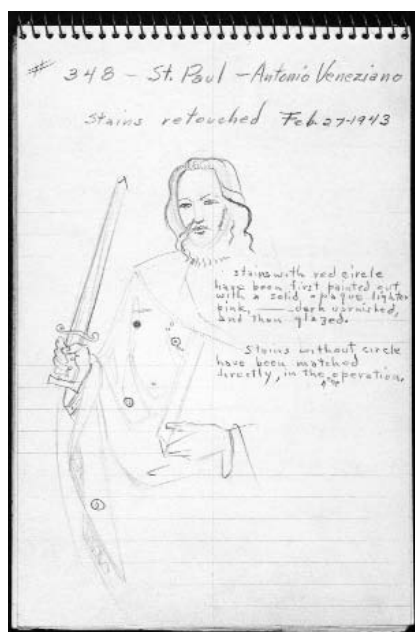 # 348 - St. Paul - Antonio Veneziano
Stains retouched Feb. 27-1943
stains with red circle
have been first painted out
with a solid, opaque lighter
pink, — dark varnished,
and then glazed.
Stains without circle
have been matched
directly, in the operation.